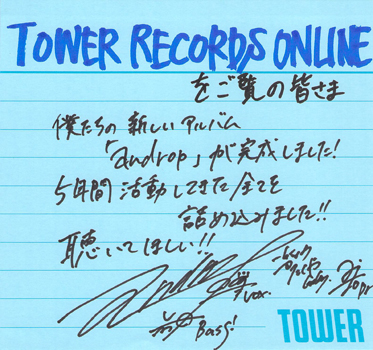 TOWER RECORDS ONLINE
をご覧の皆さま
僕たちの新しいアルバム
「androp」が完成しました!
5年間活動してきた全てを
詰め込みました!!
聴いてほしい!!
Vox.
Bass!
TOWER